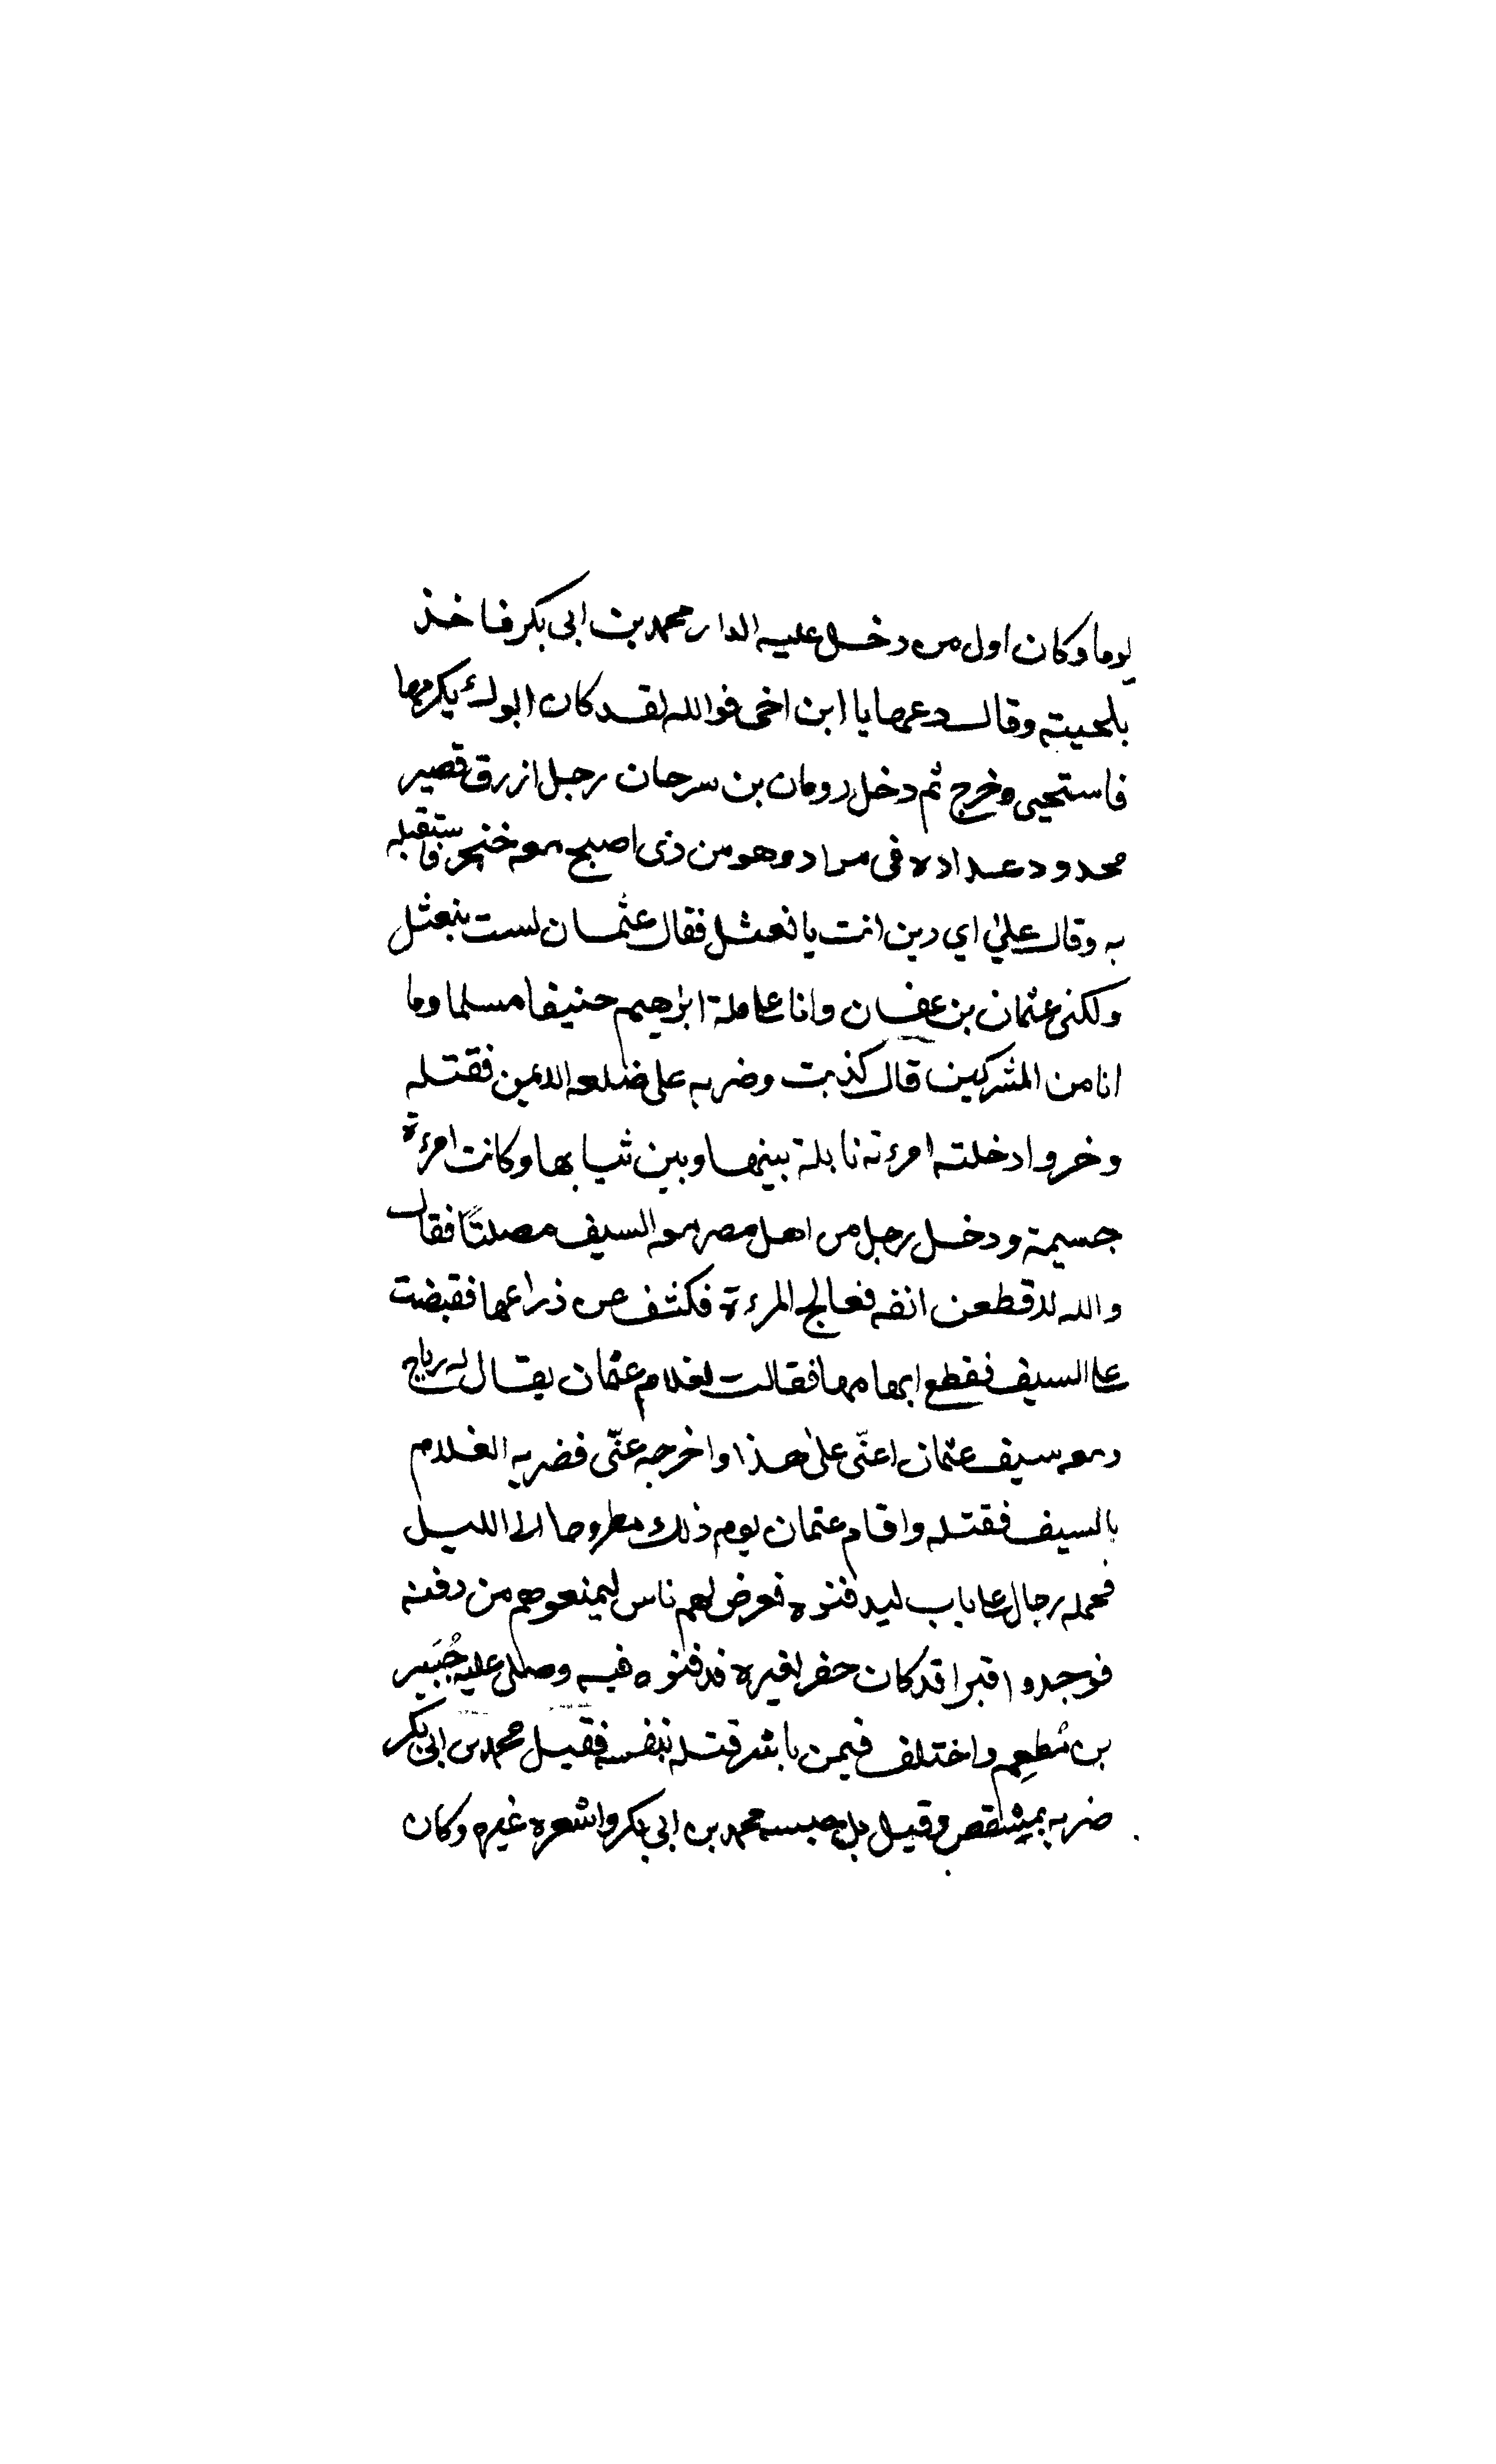 يوما وكان اول من دخل عليه الدار محمد بن ابى بكر فاخذ
بلحيته وقال دعها يا ابن اخى فوالله لقد كان ابوك يكرمها
فاستحيى وخرج ثم دخل رومان بن سرحان رجل ازرق قصير
محدود عداده فى مراد وهو من ذى اصبح معه خنجر فاستقبله
به وقال على اي دين انت يا نعثل فقال عثمان لست بنعثل
ولكنى عثمان بن عفان وانا على ملة ابرهيم حنيفا مسلما وما
انا من المشركين قال كذبت وضربه على ضلعه الايمن فقتله
وخر وادخلته امرءته نايلة بينها وبين ثيابها وكانت امرءة
جسيمة ودخل رجل من اهل مصر معه السيف مصلتًا فقال
والله لاقطعن انفه فعالج المرءة فكشف عن ذراعها فقبضت
على السيف فقطع ابهامها فقالت لغلام عثمان يقال له رباح
ومعه سيف عثمان اعنّى على هذا واخرجه عنّى فضربه الغلام
بالسيف فقتله واقام عثمان يوم ذلك مطروحا الى الليل
فحمله رجال على باب ليدفنوه فعرض لهم ناس ليمنعوهم من دفنه
فوجدوا قبرا قد كان حفر لغيره فدفنوه فيه وصلى عليه جُبَير
بن مُطعِم واختلف فيمن باشر قتله بنفسه فقيل محمد بن ابى بكر
ضربه بمشقص وقيل بل حبسه محمد بن ابى بكر واشعره غيره وكان